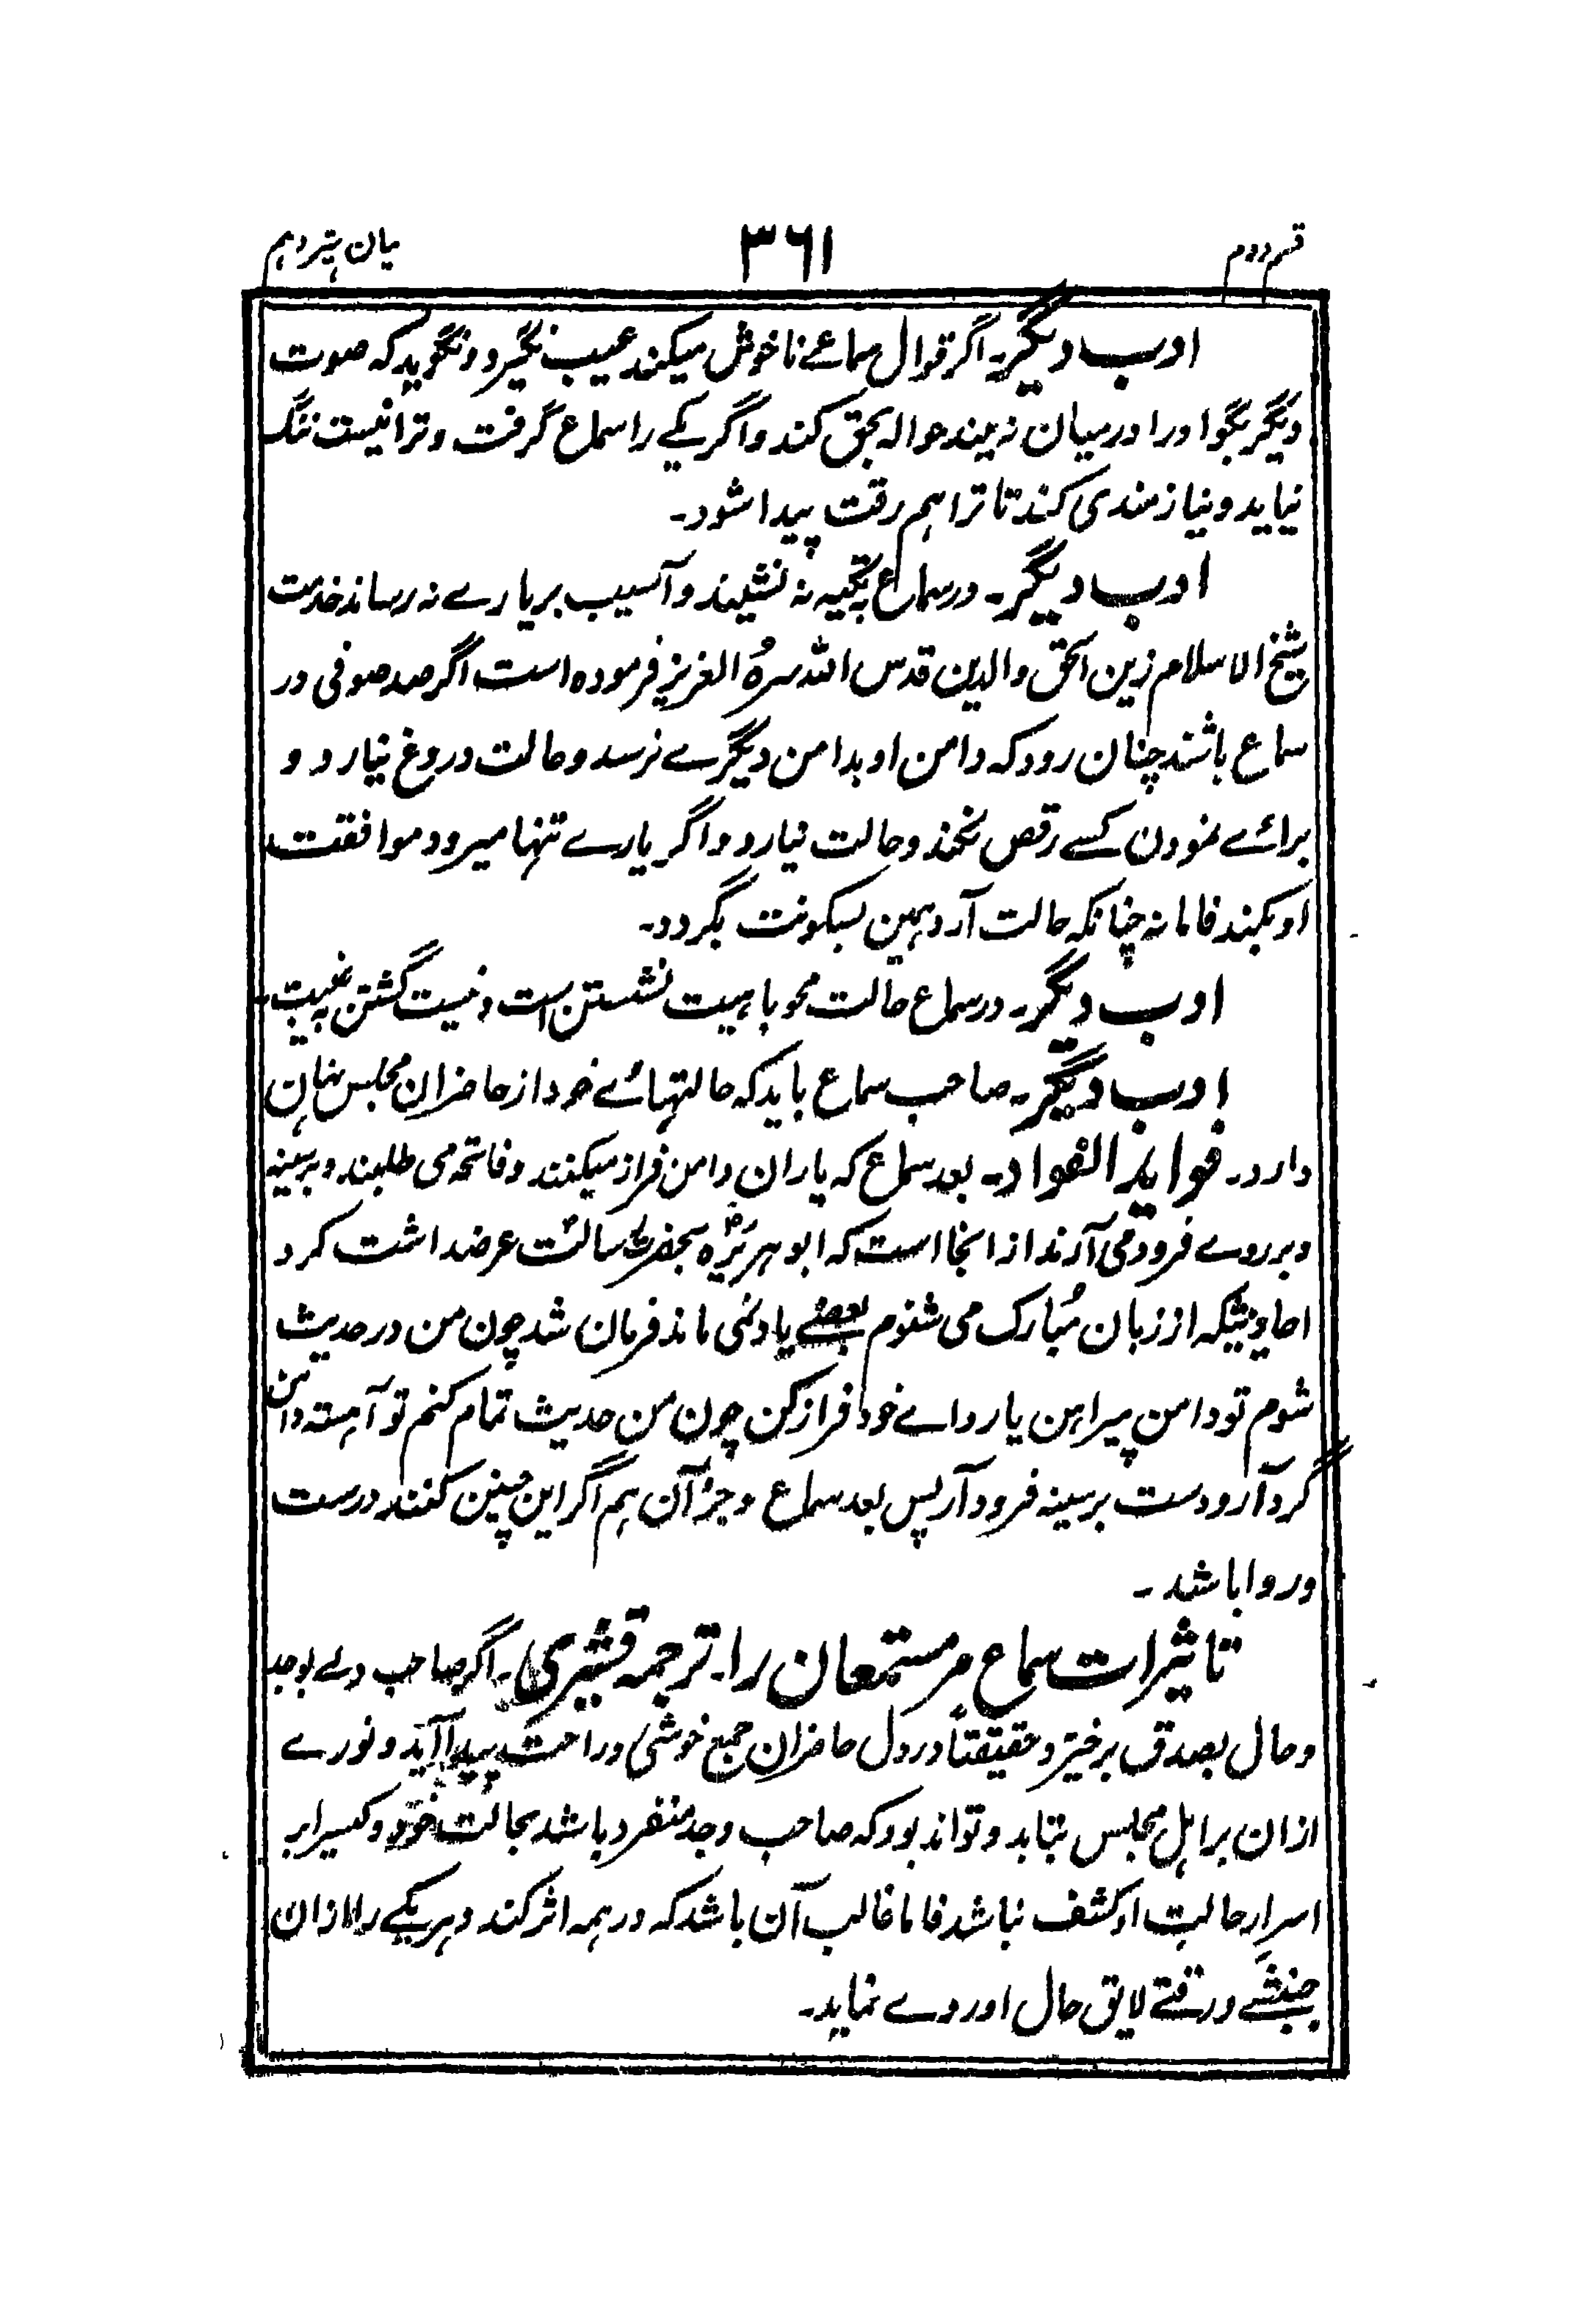 قسم دوم ۳۶۱ بیان هیزدهم
ادب دیگر۔ اگر قوال سماعے ناخوش میکند عیب نگیرد و نگوید که صوت
دیگر بگو او را درمیان نه بیند حواله بحق کند و اگر یکے را سماع گرفت و ترا نیست ننگ
نیاید و نیازمندی کند تا ترا هم رقت پیدا شود۔
ادب دیگر۔ در سماع بتکیه نه نشیند و آسیب بر یارے نه رساند خدمت
شیخ الاسلام زین الحق والدین قدس الله سرهُ العزیز فرموده است اگر صد صوفی در
سماع باشند چنان رود که دامن او بدامن دیگرے نرسد و حالت دروغ نیارد و
برائے نمودن کسے رقص نکند و حالت نیارد و اگر یارے تنها میرود موافقت
او بکند فاما نه چنانکه حالت آرد همین بسکونت بگردد۔
ادب دیگر۔ در سماع حالت محو باهیبت نشستن است و نیست گشتن بغیبت۔
ادب دیگر۔ صاحب سماع باید که حالتهائے خود از حاضران مجلس پنهان
دارد۔ فواید الفواد۔ بعد سماع که یاران دامن فراز میکنند و فاتحه می طلبند و بر سینه
و بر روے فرود می آرند از انجا است که ابو هریرهؓ بحضرت رسالتؐ عرضداشت کرد
احادیثیکه از زبان مُبارک می شنوم بعضے یاد نمی ماند فرمان شد چون من در حدیث
شوم تو دامن پیراهن یا رداے خود فراز کن چون من حدیث تمام کنم تو آهسته دامن
گرد آر و دست بر سینه فرود آر پس بعد سماع و جز آن هم اگر این چنین کنند درست
و روا باشد۔
تاثیرات سماع مر مستمعان را۔ ترجمه قشیری۔ اگر صاحب دلے بوجد
و حال بصدق برخیزد حقیقتاً در دل حاضران جمع خوشی و راحت پیدا آید و نورے
ازان بر اهل مجلس بتابد و تواند بود که صاحب وجد منفرد باشد بحالت خود و کسیرا بر
اسرار حالت او کشف نباشد فاما غالب آن باشد که در همه اثر کند و هر یکے را ازان
جنبشے و رقتے لایق حال او روے نماید۔